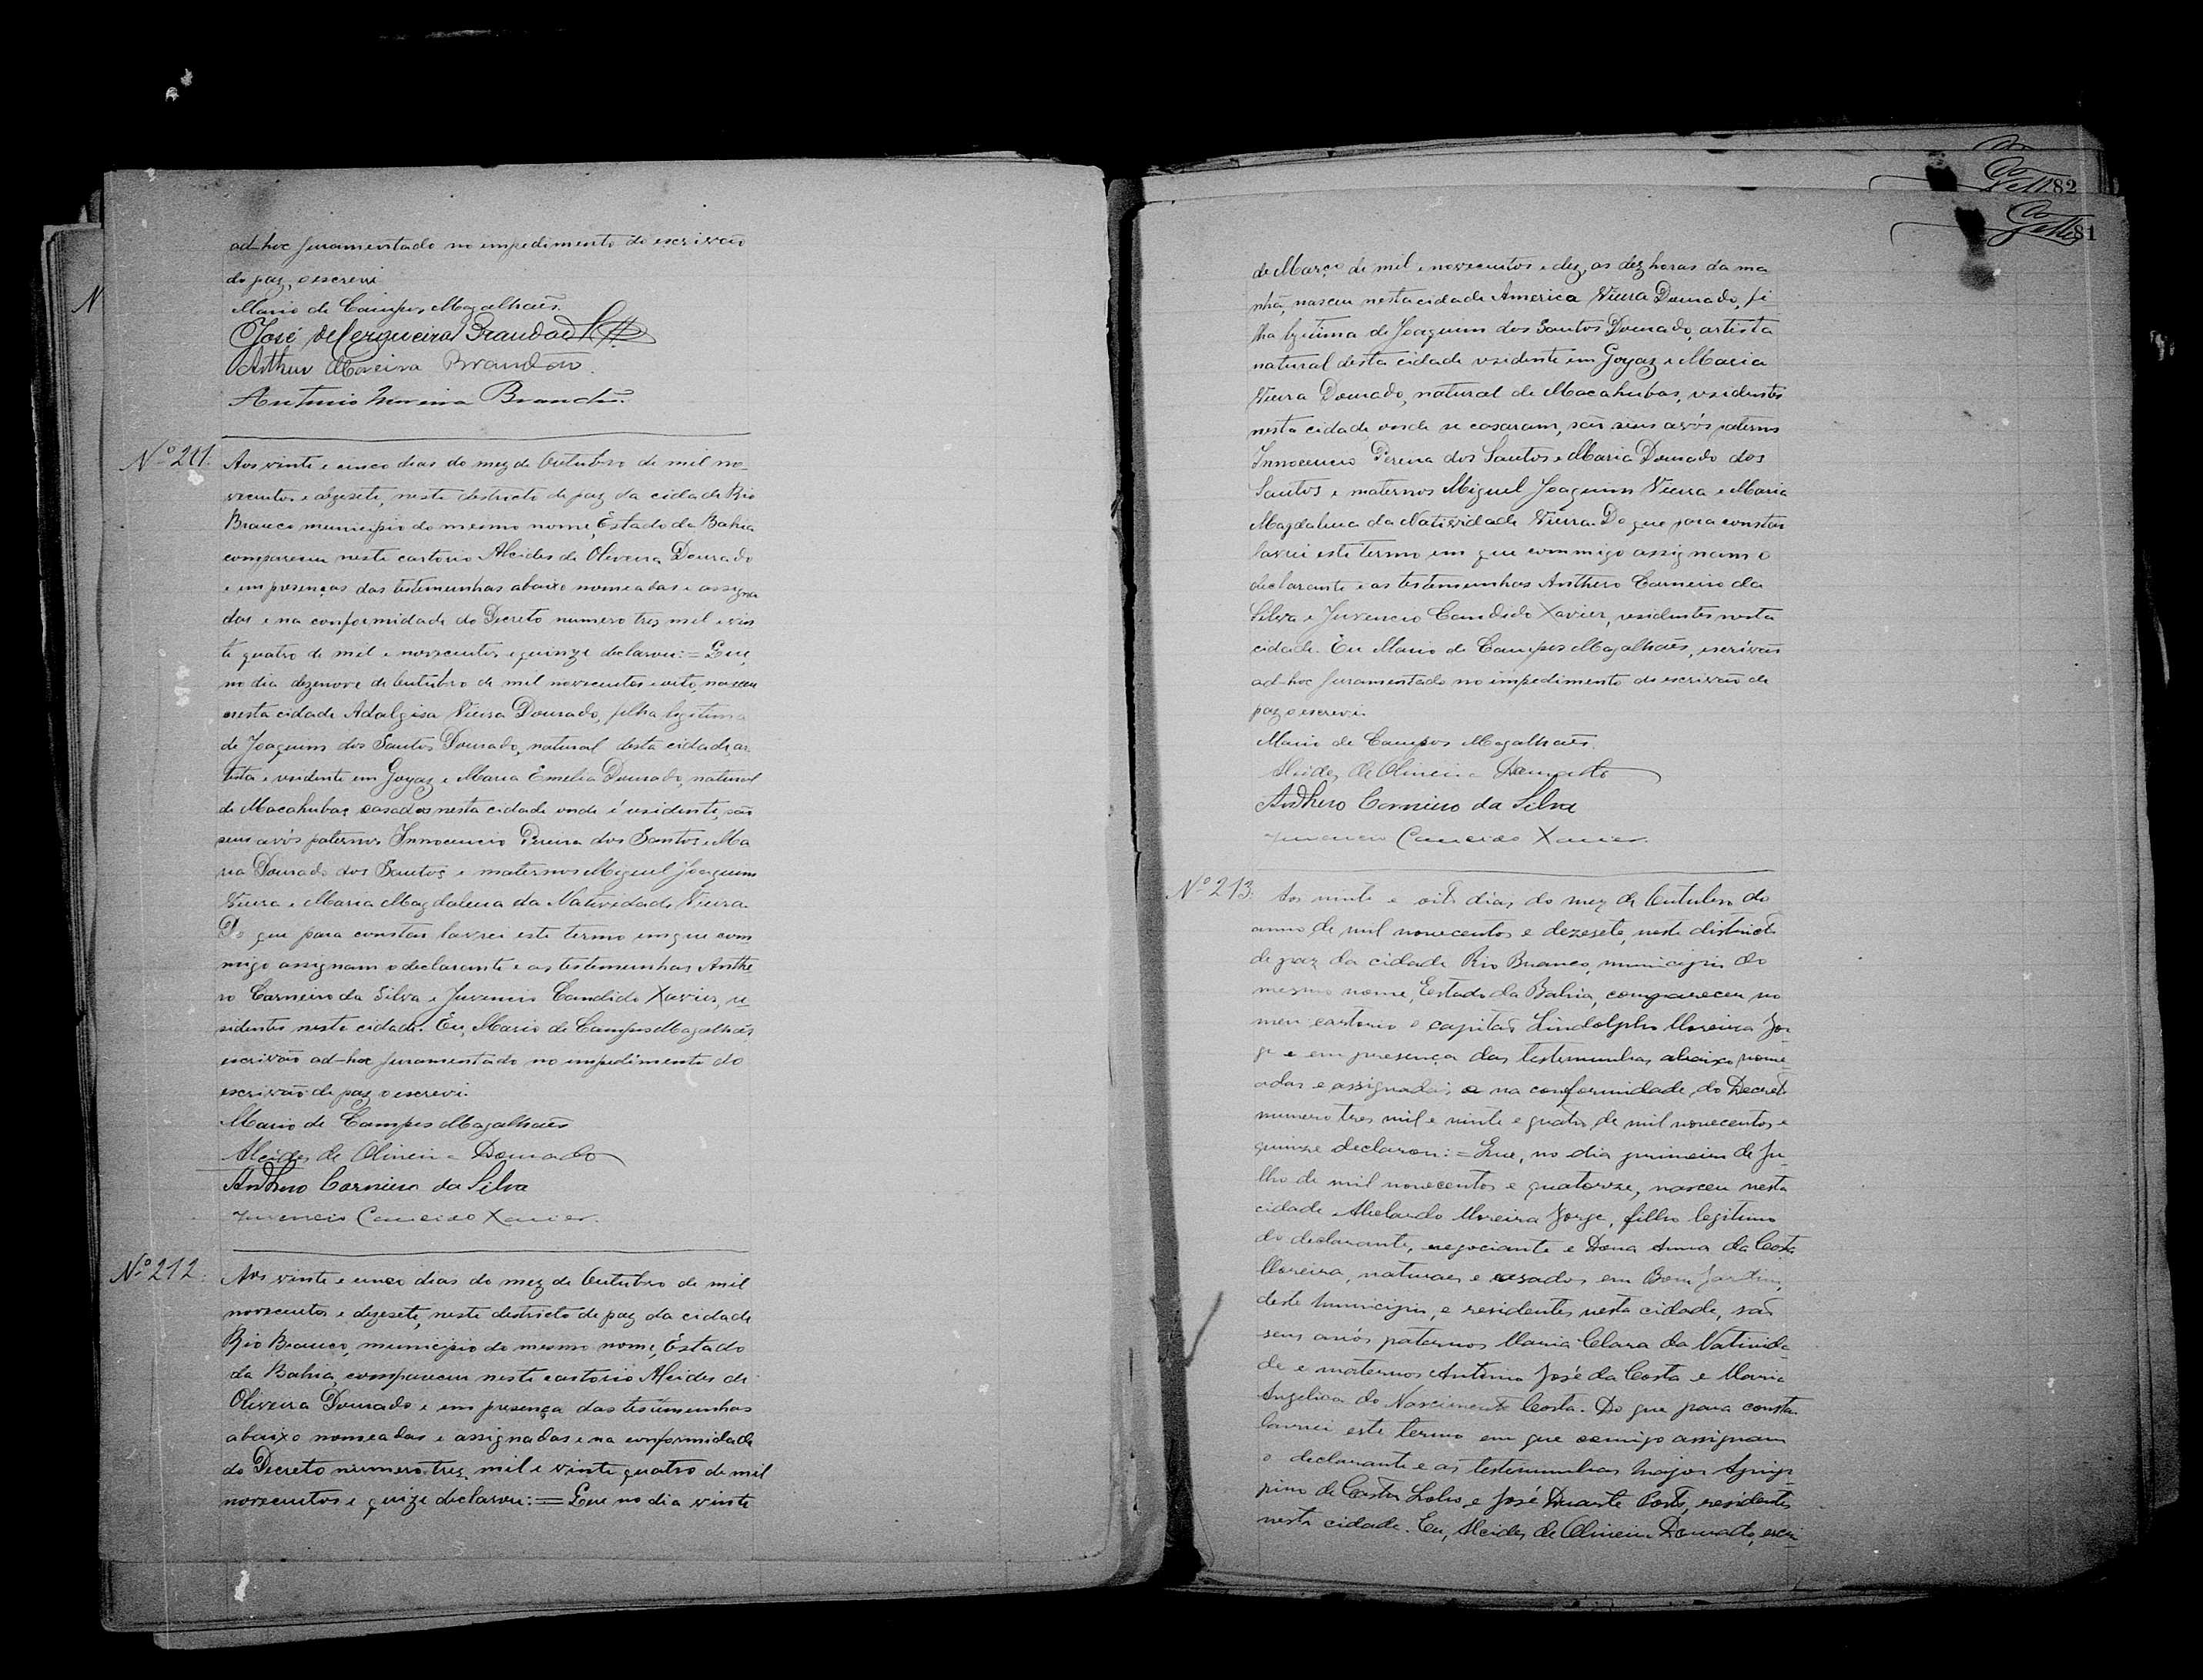 ad-hoc juramentado no impedimento do escrivão
de paz, o escrevi
Mario de Campos Magalhães.
José de Cerqueira Brandão
Arthur Moreira Brandão.
Antonio Moreira Brandão.
Nº 211. Aos vinte e cinco dias do mez de Outubro de mil no-
vecentos e dezesete, neste districto de paz da cidade Rio
Branco municipio do mesmo nome, Estado da Bahia
compareceu neste cartorio Alcides de Oliveira Dourado
e em presenças das testemunhas abaixo nomeadas e assigna
das e na conformidade do Decreto numero tres mil e vin
te quatro de mil e novecentos e quinze declarou:= Que,
no dia dezenove de Outubro de mil novecentos e oito, nasceu
nesta cidade Adalgisa Vieira Dourado, filha legitima
de Joaquim dos Santos Dourado, natural desta cidade ar
tista e residente em Goyaz e Maria Emelia Dourado, natural
de Macahubas casados nesta cidade onde é residente, são
seus avós paternos Innocencio Pereira dos Santos e Ma
ria Dourado dos Santos e maternos Miguel Joaquim
Vieira e Maria Magdalena da Natividade Vieira.
Do que para constar lavrei este termo em que com
migo assignam o declarante e as testemunhas Anthe
ro Carneiro da Silva e Juvencio Candido Xavier, re-
sidentes neste cidade. Eu, Mario de Campos Magalhães,
escrivão ad-hoc juramentado no impedimento do
escrivão de paz o escrevi.
Mario de Campos Magalhães
Alcides de Oliveira Dourado
Anthero Carneiro da Silva
Juvencio Candido Xavier.
Nº 212. Aos vinte e cinco dias do mez de Outubro de mil
novecentos e dezesete, neste districto de paz da cidade
Rio Branco, municipio do mesmo nome, Estado
da Bahia, compareceu neste cartorio Alcides de
Oliveira Dourado e em presença das testemunhas
abaixo nomeadas e assignadas e na conformidade
do Decreto numero tres mil e vinte quatro de mil
novecentos e quize declarou:= Que no dia vinte
82
81
de Março de mil e novecentos e dez, as dez horas da ma
nhã, nasceu nesta cidade America Vieira Dourado, fi
lha legitima de Joaquim dos Santos Dourado, artista
natural desta cidade residente em Goyaz e Maria
Vieira Dourado, natural de Macahubas, residentes
nesta cidade onde se casaram, são seus avós paternos
Innocencio Pereira dos Santos e Maria Dourado dos
Santos e maternos Miguel Joaquim Vieira e Maria
Magdalena da Natividade Vieira. Do que para constar
lavrei este termo em que commigo assignam o
declarante e as testemunhas Anthero Carneiro da
Silva e Juvencio Candido Xavier, residentes nesta
cidade. Eu Mario de Campos Magalhães, escrivão
ad-hoc juramentado no impedimento do escrivão de
paz o escrevi.
Mario de Campos Magalhães.
Alcides de Oliveira Dourado
Anthero Carneiro da Silva
Juvencio Candido Xavier.
Nº 213. Aos vinte e oito dias do mez de Outubro do
anno de mil novecentos e dezesete, neste districto
de paz da cidade Rio Branco, municipio do
mesmo nome, Estado da Bahia, compareceu no
meu cartorio o capitão Lindolpho Moreira Jor
ge e em presença das testemunhas abaixo nome-
adas e assignadas e na conformidade do Decreto
numero tres mil e vinte e quatro de mil novecentos e
quinze declarou:= Que, no dia primeiro de Ju-
lho de mil novecentos e quatorze, nasceu nesta
cidade Abelardo Moreira Jorge, filho legitimo
do declarante, negociante e Dona Anna da Costa
Moreira, naturaes e casados em Bom Jardim,
deste Municipio, e residentes nesta cidade, são
seus avós paternos Maria Clara da Nativida-
de e maternos Antonio José da Costa e Maria
Angelica do Nascimento Costa. Do que para constar
lavrei este termo em que comigo assignam
o declarante e as testemunhas Major Agrip-
pino de Castro Lobo e José Duarte Costa, residentes
nesta cidade. Eu, Alcides de Oliveira Dourado, escri-